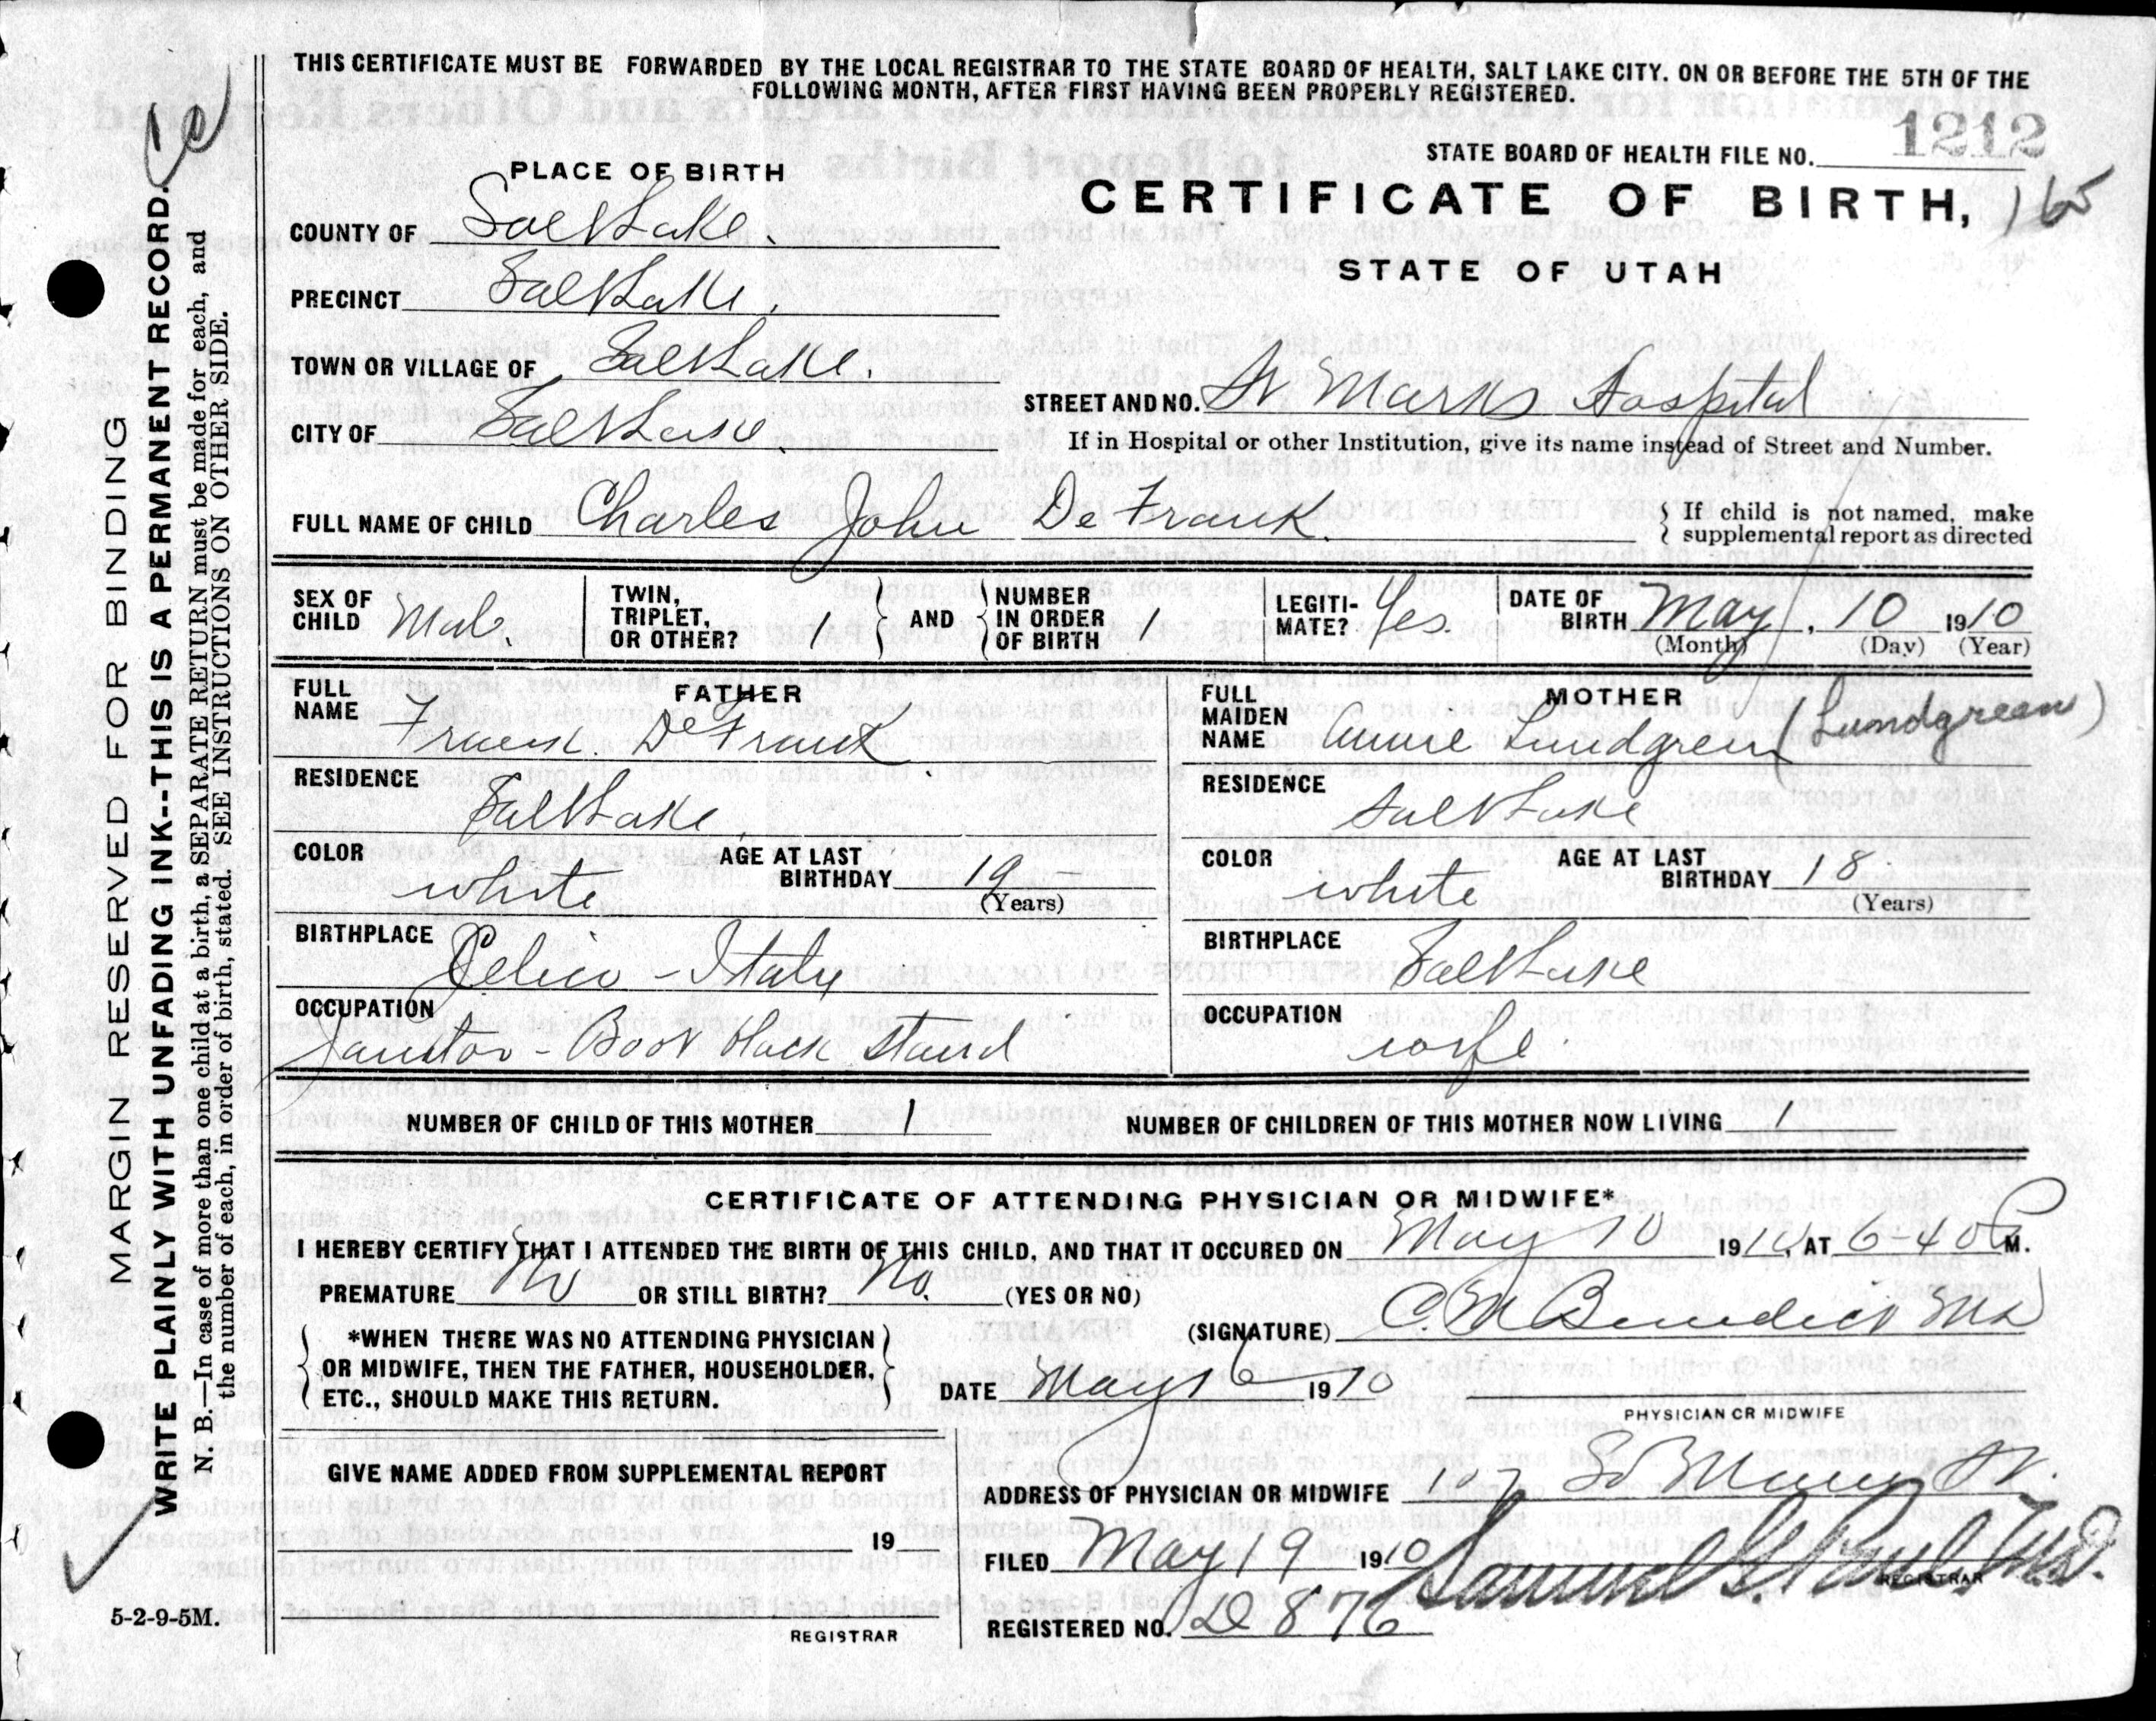 THIS CERTIFICATE MUST BE FORWARDED BY THE LOCAL REGISTRAR TO THE STATE BOARD OF HEALTH, SALT LAKE CITY. ON OR BEFORE THE 5TH OF THE
FOLLOWING MONTH, AFTER FIRST HAVING BEEN PROPERLY REGISTERED.
STATE BOARD OF HEALTH FILE NO. 1212
PLACE OF BIRTH
CERTIFICATE OF BIRTH, 165
STATE OF UTAH
COUNTY OF Salt Lake.
PRECINCT Salt Lake.
TOWN OR VILLAGE OF Salt Lake.
CITY OF Salt Lake
STREET AND NO. St Marks Hospital
If in Hospital or other Institution, give its name instead of Street and Number.
FULL NAME OF CHILD Charles John De Frank.
If child is not named, make
supplemental report as directed
SEX OF CHILD Male.
TWIN, TRIPLET, OR OTHER? 1
AND NUMBER IN ORDER OF BIRTH 1
LEGITI-MATE? Yes
DATE OF BIRTH May, 10 1910
(Month) (Day) (Year)
FATHER
FULL NAME Frank De Frank.
RESIDENCE Salt Lake.
COLOR white AGE AT LAST BIRTHDAY 19
(Years)
BIRTHPLACE Celico - Italy
OCCUPATION Janitor - Boot black Stand
MOTHER
FULL MAIDEN NAME Annie Lundgren (Lundgreen)
RESIDENCE Salt Lake
COLOR white AGE AT LAST BIRTHDAY 18.
(Years)
BIRTHPLACE Salt Lake
OCCUPATION wife.
NUMBER OF CHILD OF THIS MOTHER 1
NUMBER OF CHILDREN OF THIS MOTHER NOW LIVING 1
CERTIFICATE OF ATTENDING PHYSICIAN OR MIDWIFE*
I HEREBY CERTIFY THAT I ATTENDED THE BIRTH OF THIS CHILD, AND THAT IT OCCURED ON May 10 1910, AT 6-40 P M.
PREMATURE No OR STILL BIRTH? No. (YES OR NO)
*WHEN THERE WAS NO ATTENDING PHYSICIAN
OR MIDWIFE, THEN THE FATHER, HOUSEHOLDER,
ETC., SHOULD MAKE THIS RETURN.
(SIGNATURE) C. M Benedict MD
DATE May 16 1910
PHYSICIAN OR MIDWIFE
GIVE NAME ADDED FROM SUPPLEMENTAL REPORT
19
REGISTRAR
ADDRESS OF PHYSICIAN OR MIDWIFE 107 So Main St.
FILED May 19 1910 Samuel G. Paul M.D.
REGISTRAR
REGISTERED NO. D 876
MARGIN RESERVED FOR BINDING
WRITE PLAINLY WITH UNFADING INK--THIS IS A PERMANENT RECORD.
N. B.—In case of more than one child at a birth, a SEPARATE RETURN must be made for each, and
the number of each, in order of birth, stated. SEE INSTRUCTIONS ON OTHER SIDE.
5-2-9-5M.